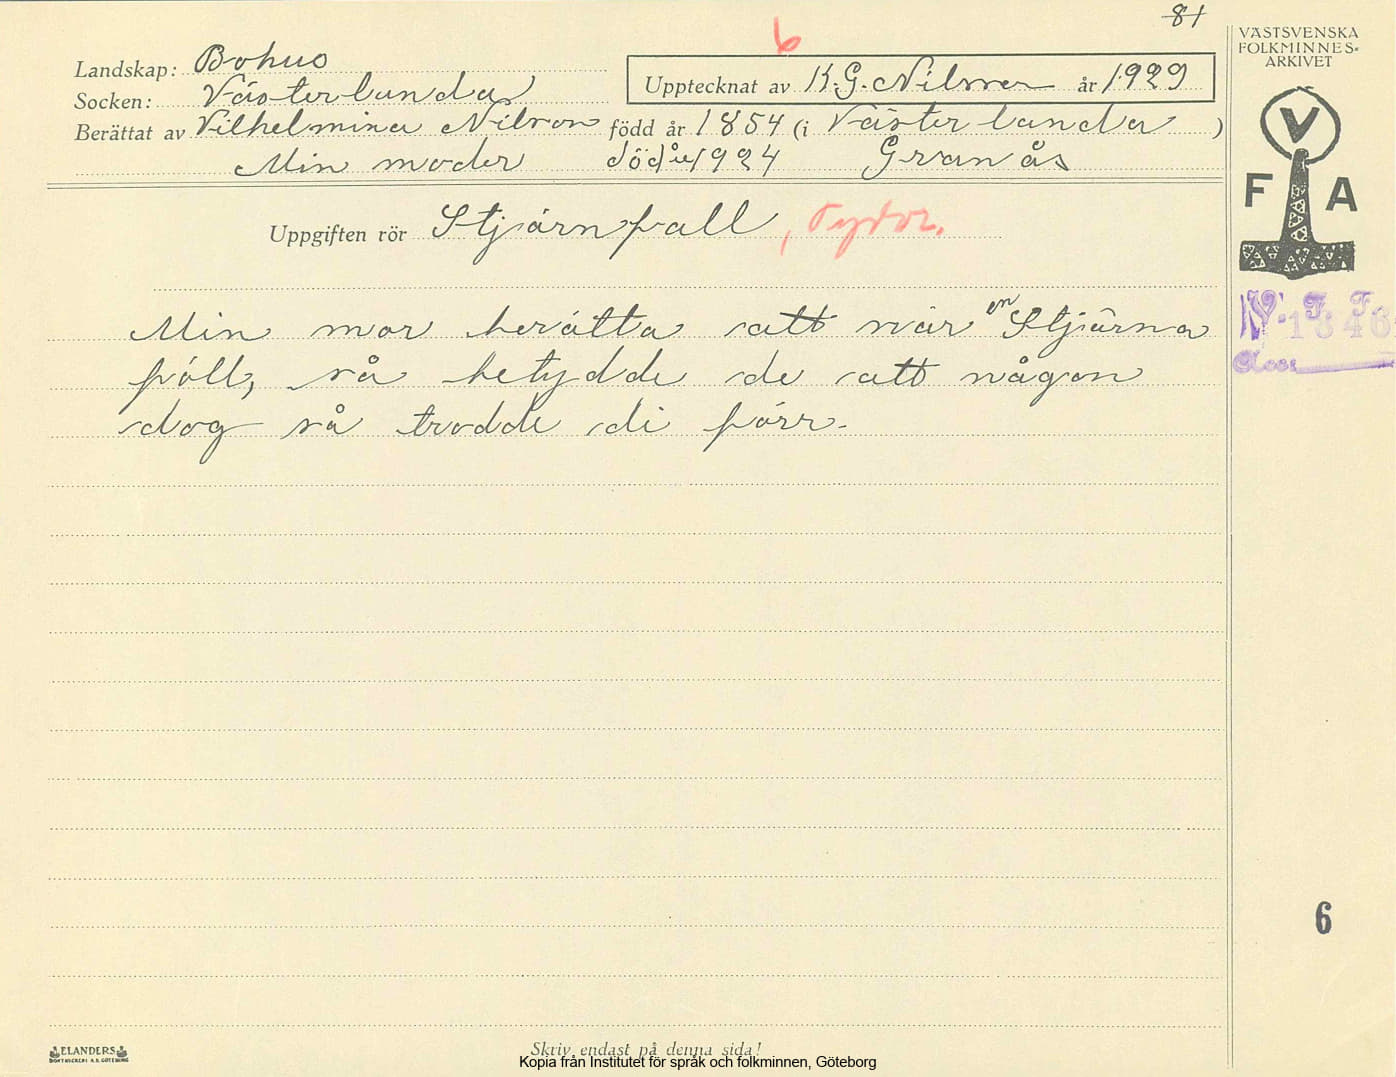 81
6
VÄSTSVENSKA
FOLKMINNES-
ARKIVET
Landskap: Bohus
Socken: Västerlanda
Upptecknat av K.G. Nilsson år 1929
Berättat av Vilhelmina Nilson född år 1854 (i Västerlanda)
Min moder död år 1924 Granås
V
F A
Uppgiften rör Stjärnfall,
Min mor berätta att när en Stjärna
föll, så betydde de att någon
dog så trodde di förr.
V.F.F.
1346
Acc:
6
ELANDERS
BOKTRYCKERI A.B. GÖTEBORG
Skriv endast på denna sida!
Kopia från Institutet för språk och folkminnen, Göteborg